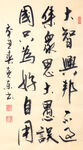 大智興邦不過
集衆思大愚誤
國只為好自用